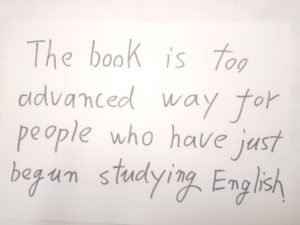 The book is too
advanced way for
people who have just
begun studying English.